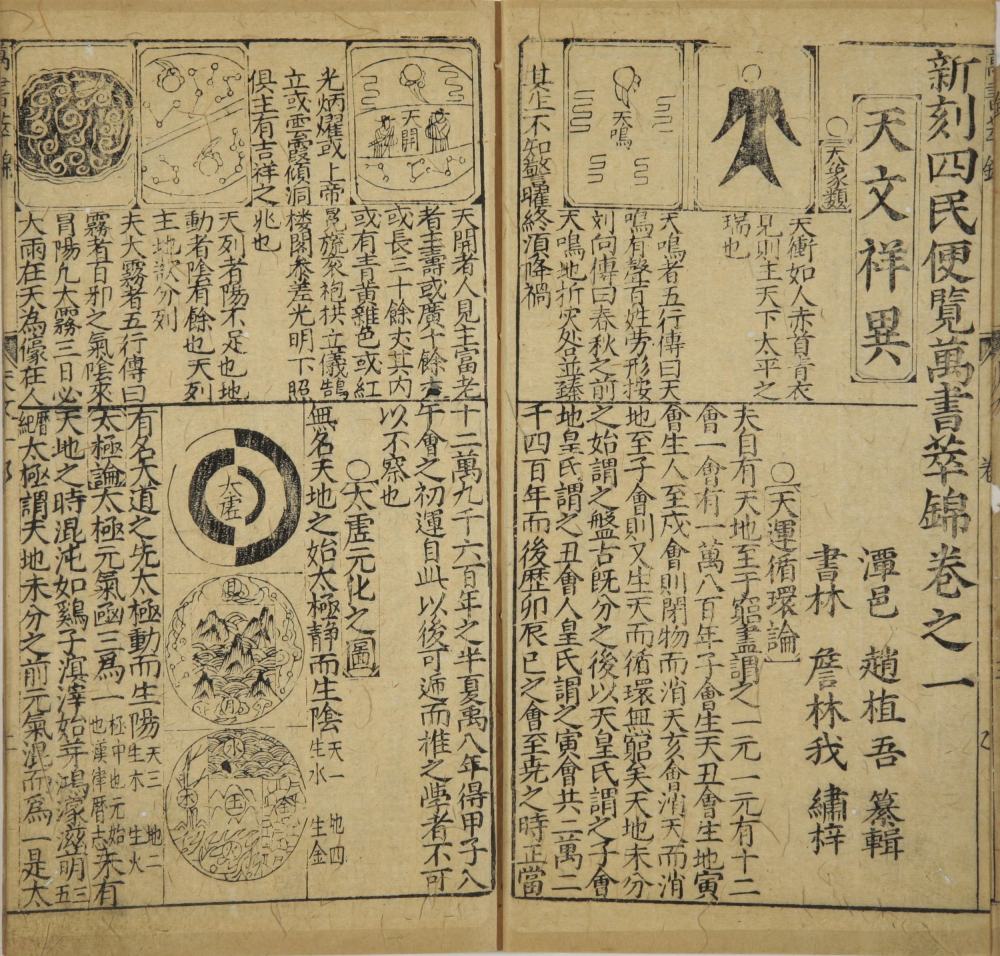 新刻四民便覽萬書萃錦卷之一
潭邑 趙植吾 纂輯
書林 詹林我 繡梓
天文祥異
○天象類
天衝如人赤首青衣
見則主天下太平之
瑞也
天鳴
天鳴者五行傳曰天
鳴有聲百姓勞形按
刘向傳曰春秋之前
天鳴地折灾咎並臻
其生不知 曜終湏降禍
○天運循環論
夫自有天地至于窮盡謂之一元一元有十二
會一會有一萬八百年子會生天丑會生地寅
會生人至戍會則閉物而消天亥會消天而消
地至子會則又生天而循環無窮矣天地未分
之始謂之盤古既分之後以天皇氏謂之子會
地皇氏謂之丑會人皇氏謂之寅會共二萬二
千四百年而後歷卯辰巳之會至尭之時正當
天開
天開者人見主富老
者主壽或廣十餘丈
或長三十餘丈其内
或有青黃雜色或紅
光炳燿或上帝冕旒衮袍拱立儀鵠
立或雲霞傾洞楼閣参差光明下照
俱主有吉祥之兆也
天列者陽不足也地
動者陰有餘也天列
主地欲分列
夫大霧者五行傳曰
霧者百邪之氣陰來
冒陽凢大霧三日必
大雨在天為濛在人
十二萬九千六百年之半夏禹八年得甲子入
午會之初運自此以後可逓而推之學者不可
以不察也
○太虛元化之圖
無名天地之始太極静而生陰 天一生水 地四生金
太虛
日 月
水 火 土 木 金
有名大道之先太極動而生陽 天三生木 地二生火
太極論太極元氣函三為一 極中也元始也漢律曆志 未有
天地之時混沌如鷄子溟涬始芽鴻濛滋明 三五
曆紀 太極謂天地未分之前元氣混而為一是太